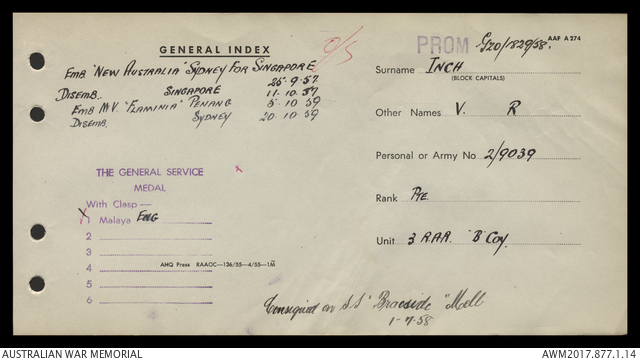 GENERAL INDEX
O/S
Emb "New Australia" Sydney For Singapore
25·9·57
Disemb. Singapore 11·10·57
Emb M.V. "Flaminia" Penang 5·10·59
Disemb. Sydney 20·10·59
THE GENERAL SERVICE
MEDAL
With Clasp—
X 1 Malaya Eng
2
3
4
5
6
AHQ Press RAAOC—136/55—4/55—1M
PROM G20/1829/58.
AAF A 274
Surname INCH
(BLOCK CAPITALS)
Other Names V. R
Personal or Army No 2/9039
Rank Pte
Unit 3 RAR. "B" Coy.
Consigned on S.S "Braeside" Melb
1-7-58
AUSTRALIAN WAR MEMORIAL
AWM2017.877.1.14